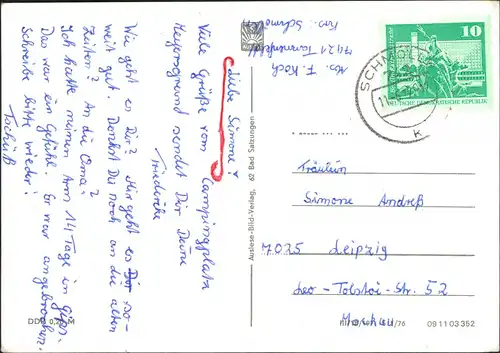 Liebe Simone!
Viele Grüße vom Campingplatz
Meyersgrund sendet Dir Deine
Friederike
Wie geht es Dir? Mir geht es so-
weit gut. Denkst Du noch an die alten
Zeiten? An die Oma?
Ich hatte meinen Arm 14 Tage in Gips.
Das war ein Gefühl. Er war angebrochen.
Schreibe bitte wieder!
Tschüß
DDR 0,20 M
Auslese-Bild-Verlag, 62 Bad Salzungen
Abs. F. Koch
7421
Krs. Schmölln
10
DEUTSCHE DEMOKRATISCHE REPUBLIK
SCHMÖLLN
Fräulein
Simone Andreß
7025 Leipzig
Leo-Tolstoi-Str. 52
09 11 03 352